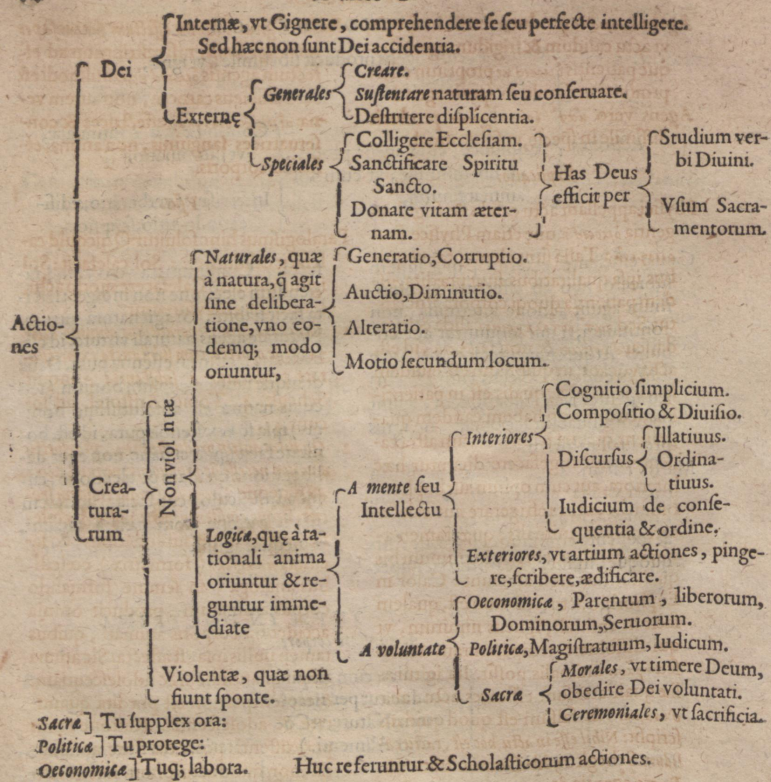 Internæ, vt Gignere, comprehendere se seu perfecte intelligere.
Sed hæc non sunt Dei accidentia.
Dei
Externę
Generales
Creare.
Sustentare naturam seu conseruare.
Destruere displicentia.
Speciales
Colligere Ecclesiam.
Sanctificare Spiritu
Sancto.
Donare vitam æter-
nam.
Has Deus
efficit per
Studium ver-
bi Diuini.
Vsum Sacra-
mentorum.
Actio-
nes
Crea-
tura-
rum
Non viol ntæ
Naturales, quæ
à natura, q̃ agit
sine delibera-
tione, vno eo-
demq; modo
oriuntur,
Generatio, Corruptio.
Auctio, Diminutio.
Alteratio.
Motio secundum locum.
Logicæ, quę à ra-
tionali anima
oriuntur & re-
guntur imme-
diate
A mente seu
Intellectu
Interiores
Cognitio simplicium.
Compositio & Diuisio.
Discursus
Illatiuus.
Ordina-
tiuus.
Iudicium de conse-
quentia & ordine.
Exteriores, vt artium actiones, pinge-
re, scribere, ædificare.
A voluntate
Oeconomicæ, Parentum, liberorum,
Dominorum, Seruorum.
Politicæ, Magistratuum, Iudicum.
Sacræ
Morales, vt timere Deum,
obedire Dei voluntati.
Ceremoniales, vt sacrificia.
Violentæ, quæ non
fiunt sponte.
Sacræ] Tu supplex ora:
Politicæ] Tu protege:
Oeconomicæ] Tuq; labora. Huc referuntur & Scholasticorum actiones.